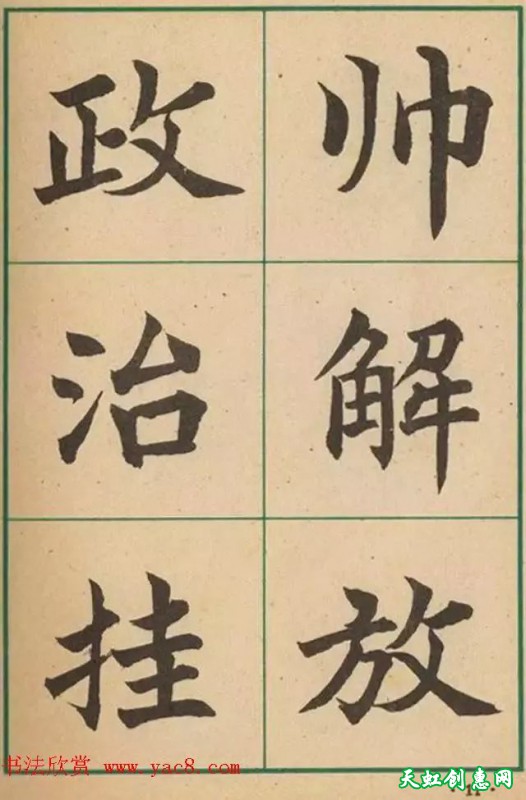 政治挂
帅解放
书法欣赏 www.yac8.com
天虹创惠网